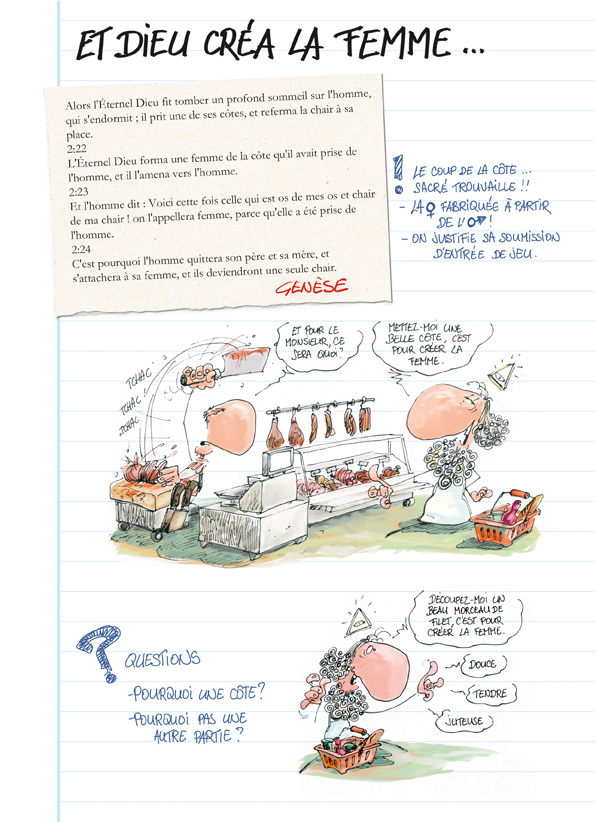 ET DIEU CRÉA LA FEMME ...
Alors l'Éternel Dieu fit tomber un profond sommeil sur l'homme,
qui s'endormit ; il prit une de ses côtes, et referma la chair à sa
place.
2:22
L'Éternel Dieu forma une femme de la côte qu'il avait prise de
l'homme, et il l'amena vers l'homme.
2:23
Et l'homme dit : Voici cette fois celle qui est os de mes os et chair
de ma chair ! on l'appellera femme, parce qu'elle a été prise de
l'homme.
2:24
C'est pourquoi l'homme quittera son père et sa mère, et
s'attachera à sa femme, et ils deviendront une seule chair.
GENÈSE
! LE COUP DE LA CÔTE ...
SACRÉ TROUVAILLE !!
- LA ♀ FABRIQUÉE À PARTIR
DE L'♂ !
- ON JUSTIFIE SA SOUMISSION
D'ENTRÉE DE JEU.
TCHAC !
TCHAC !
TCHAC
ET POUR LE
MONSIEUR, CE
SERA QUOI ?
METTEZ-MOI UNE
BELLE CÔTE, C'EST
POUR CRÉER LA
FEMME.
? QUESTIONS
- POURQUOI UNE CÔTE ?
- POURQUOI PAS UNE
AUTRE PARTIE ?
DÉCOUPEZ-MOI UN
BEAU MORCEAU DE
FILET, C'EST POUR
CRÉER LA FEMME.
DOUCE
TENDRE
JUTEUSE